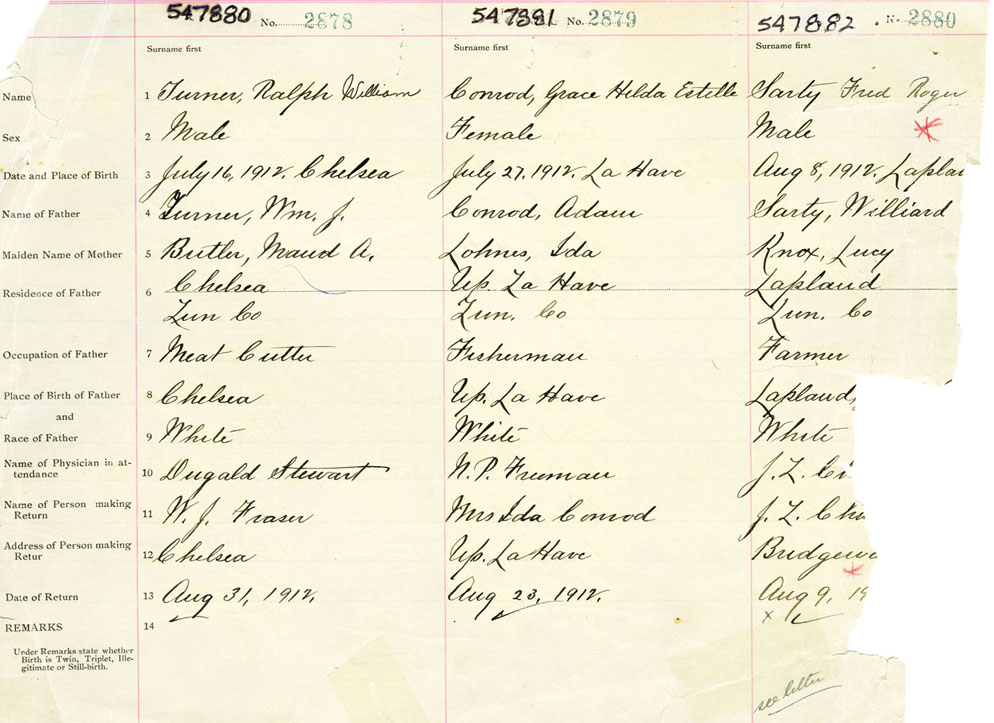 547880 No. 2878 547881 No. 2879 547882 No. 2880
Surname first Surname first Surname first
Name 1 Turner, Ralph William Conrod, Grace Hilda Estelle Sarty Fred Roger
Sex 2 Male Female Male
Date and Place of Birth 3 July 16, 1912. Chelsea July 27, 1912. La Have Aug 8, 1912. Laplan
Name of Father 4 Turner, Wm. J. Conrod, Adam Sarty, Williard
Maiden Name of Mother 5 Butler, Maud A. Lohnes, Ida Knox, Lucy
Residence of Father 6 Chelsea Up. La Have Lapland
Lun Co Lun. Co Lun. Co
Occupation of Father 7 Meat Cutter Fisherman Farmer
Place of Birth of Father 8 Chelsea Up. La Have Lapland,
and
Race of Father 9 White White White
Name of Physician in at-
tendance 10 Dugald Stewart N. P. Freeman J. L.
Name of Person making
Return 11 W. J. Fraser Mrs Ida Conrod J. L.
Address of Person making
Retur 12 Chelsea Up. La Have Bridgew
Date of Return 13 Aug 31, 1912. Aug 23, 1912. Aug 9, 19
REMARKS 14
Under Remarks state whether
Birth is Twin, Triplet, Ille-
gitimate or Still-birth.
see letter